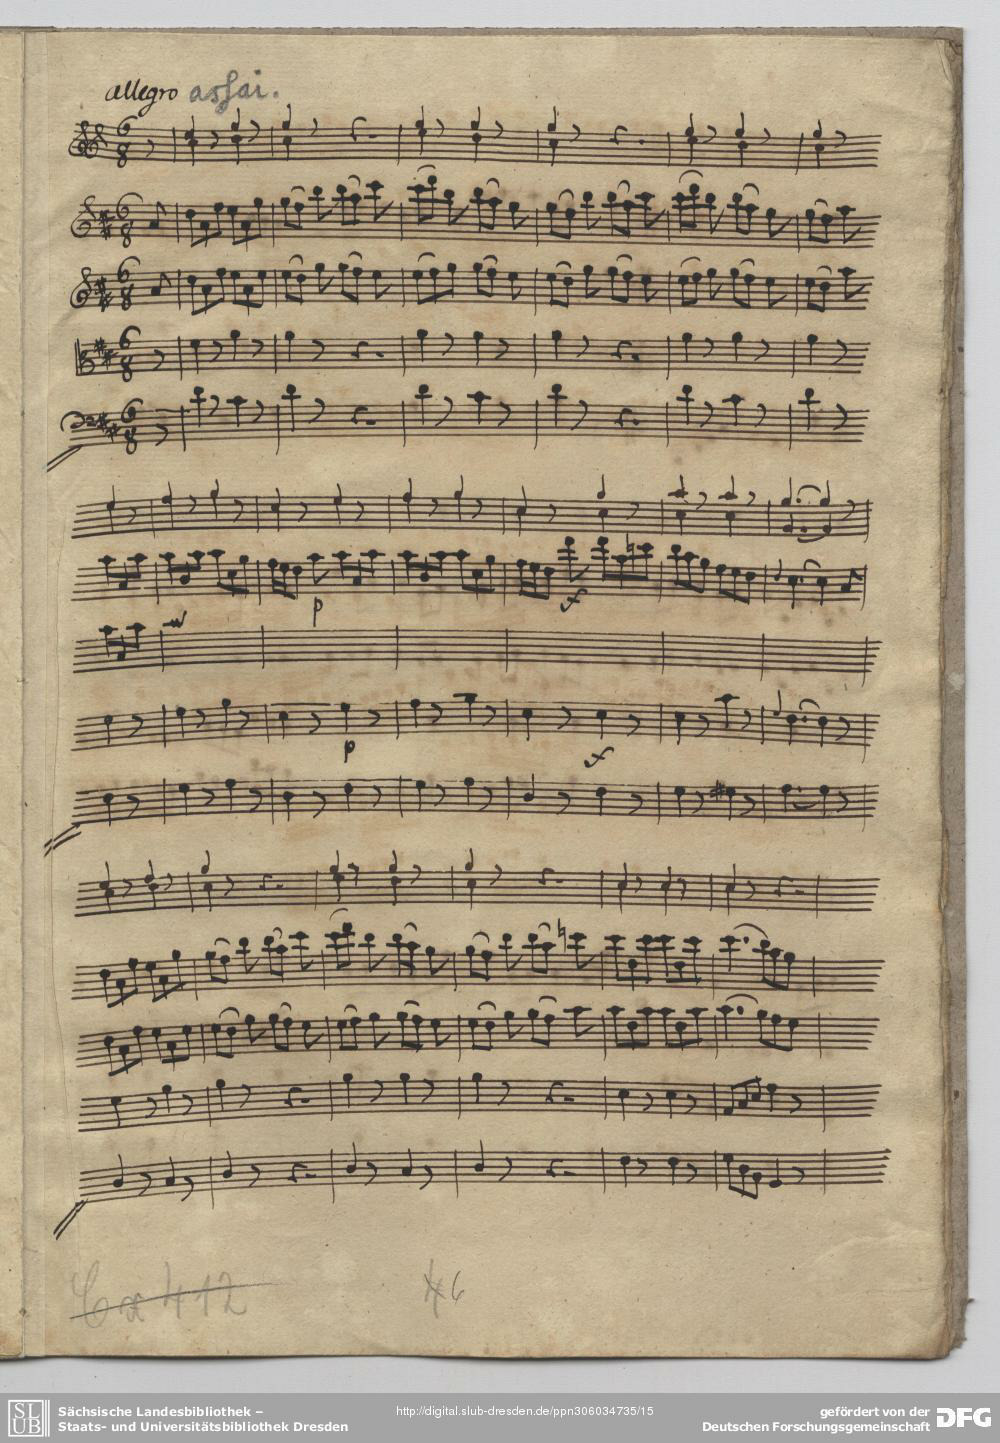 allegro assai.
6 8
6 8
6 8
6 8
6 8
p f
p f
Ca 412 46
SLUB
Sächsische Landesbibliothek –
Staats- und Universitätsbibliothek Dresden
http://digital.slub-dresden.de/ppn306034735/15
gefördert von der
Deutschen Forschungsgemeinschaft
DFG